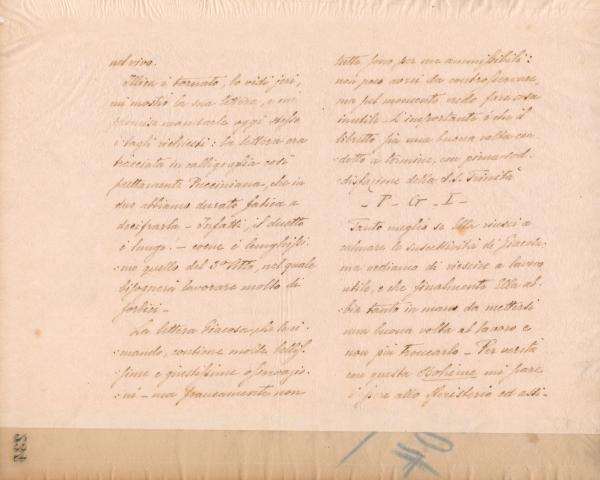 nel vivo.
Illica è tornato, lo vidi jeri,
mi mostrò la sua lettera, e mi
promise mandarle oggi stesso
i tagli richiesti: la lettera era
tracciata in calligrafia così
prettamente Pucciniana, che in
due abbiamo durato fatica a
decifrarla - Infatti, il duetto
è lungo: - come è lunghissi-
:mo quello del 3º Atto, nel quale
bisognerà lavorare molto di
forbici -
La lettera Giacosa, che le ri-
:mando, contiene molte bellis-
:sime e giustissime osservazio-
:ni - ma francamente non
tutte sono per me ammissibili:
non poco avrei da controosservare,
ma pel momento credo fare cosa
inutile - L'importante è che il
libretto sia una buona volta con-
dotto a termine, con piena sod-
:disfazione della S.S. Trinità
- P - G - I -
Tanto meglio se Ella riuscì a
calmare le suscettività di Giacosa:
ma vediamo di riescire a lavoro
utile, e che finalmente Ella ab-
bia tanto in mano da mettersi
una buona volta al lavoro e
non più troncarlo - Per verità
con questa Bohème mi pare
d'essere allo ed assi-
334